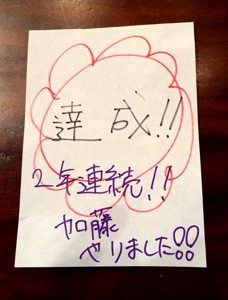 達成!!
2年連続!!
加藤
やりました!!